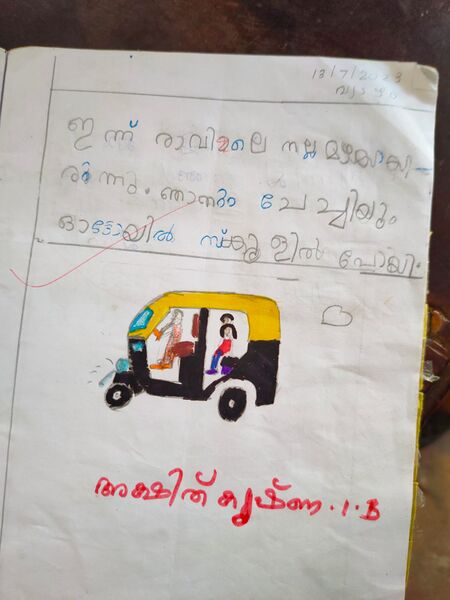 13/7/2023
വ്യാഴം
ഇന്ന് രാവിലെ നല്ല മഴയായി-
രുന്നു. ഞാനും ചേച്ചിയും
ഓട്ടോയിൽ സ്കൂളിൽ പോയി.
അക്ഷിത് കൃഷ്ണ. 1. B